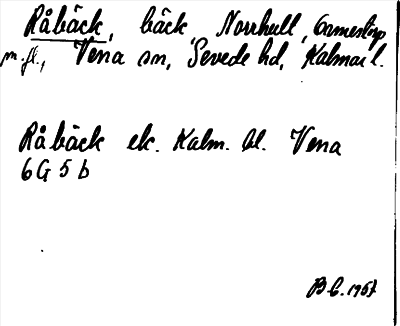 Råbäck, bäck Norrhult, Ormestorp
m.fl., Vena sn, Sevede hd, Kalmar l.
Råbäck ek. Kalm. bl. Vena
6G5b
B.C. 1967